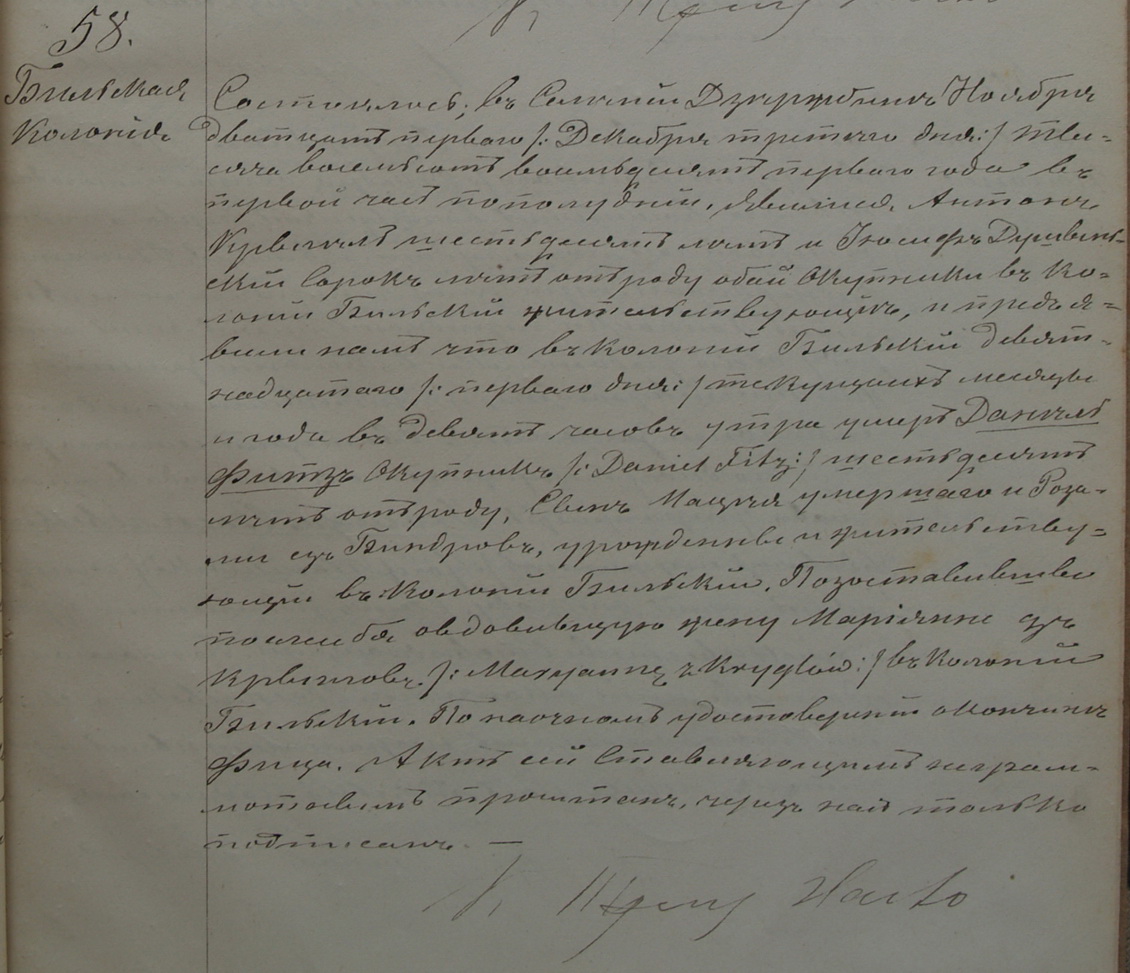 58.
Бильская
Колонія
Состоялось, въ Селеніи Дзержбинъ Ноября
дватцать перваго /: Декабря третяго дня:/ тыс-
сяча восемьсотъ восемьдесятъ перваго года въ
первой часъ пополудніи, явился, Антонъ
шестьдесятъ летъ и Іосифъ
скій Сорокъ летъ отъ роду обай Окупники въ Ко-
лоніи Бильскій жительствующіи, и предъя-
вили намъ что въ Колоніи Бильскій девят-
надцатаго /: перваго дня:/ текущихъ месяца
и года въ девять часовъ утра умеръ Данелъ
Фитзъ Окупникъ /: Daniel Fitz:/ шестьдесятъ
летъ отъ роду, Сынъ умершаго и Роза-
ли съ Биндровъ, урожденны и жительству-
ющіи въ Колоніи Бильскій. Позоставивши
послѣ себя овдовившую жену Маріянне зъ
Крыгловъ /: Maryannę z Kryglów:/ въ Колоніи
Бильскій. По наочномъ удостовереніи о кончине
Фица. Актъ сей Ставляющимъ неграм-
мотнымъ прочитанъ, черезъ насъ только
подписанъ. —